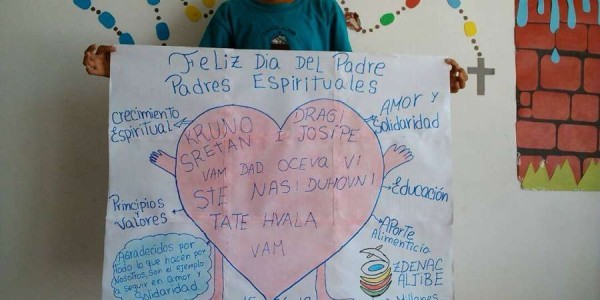 Feliz Dia Del Padre
Padres Espirituales
Crecimiento
Espiritual
AMOR Y
Solidaridad
DRAGI
KRUNO I JOSIPE
SRETAN
VAM DAD OCEVA VI
STE NASI DUHOVNI
TATE HVALA
VAM
Educación
Principios y
Valores
APorte
Alimenticio
Agradecidos por
todo lo que hacen por
Nosotros, Son el ejemplo
a seguir en amor y
Solidaridad
ZDENAC
ALJIBE
Millones